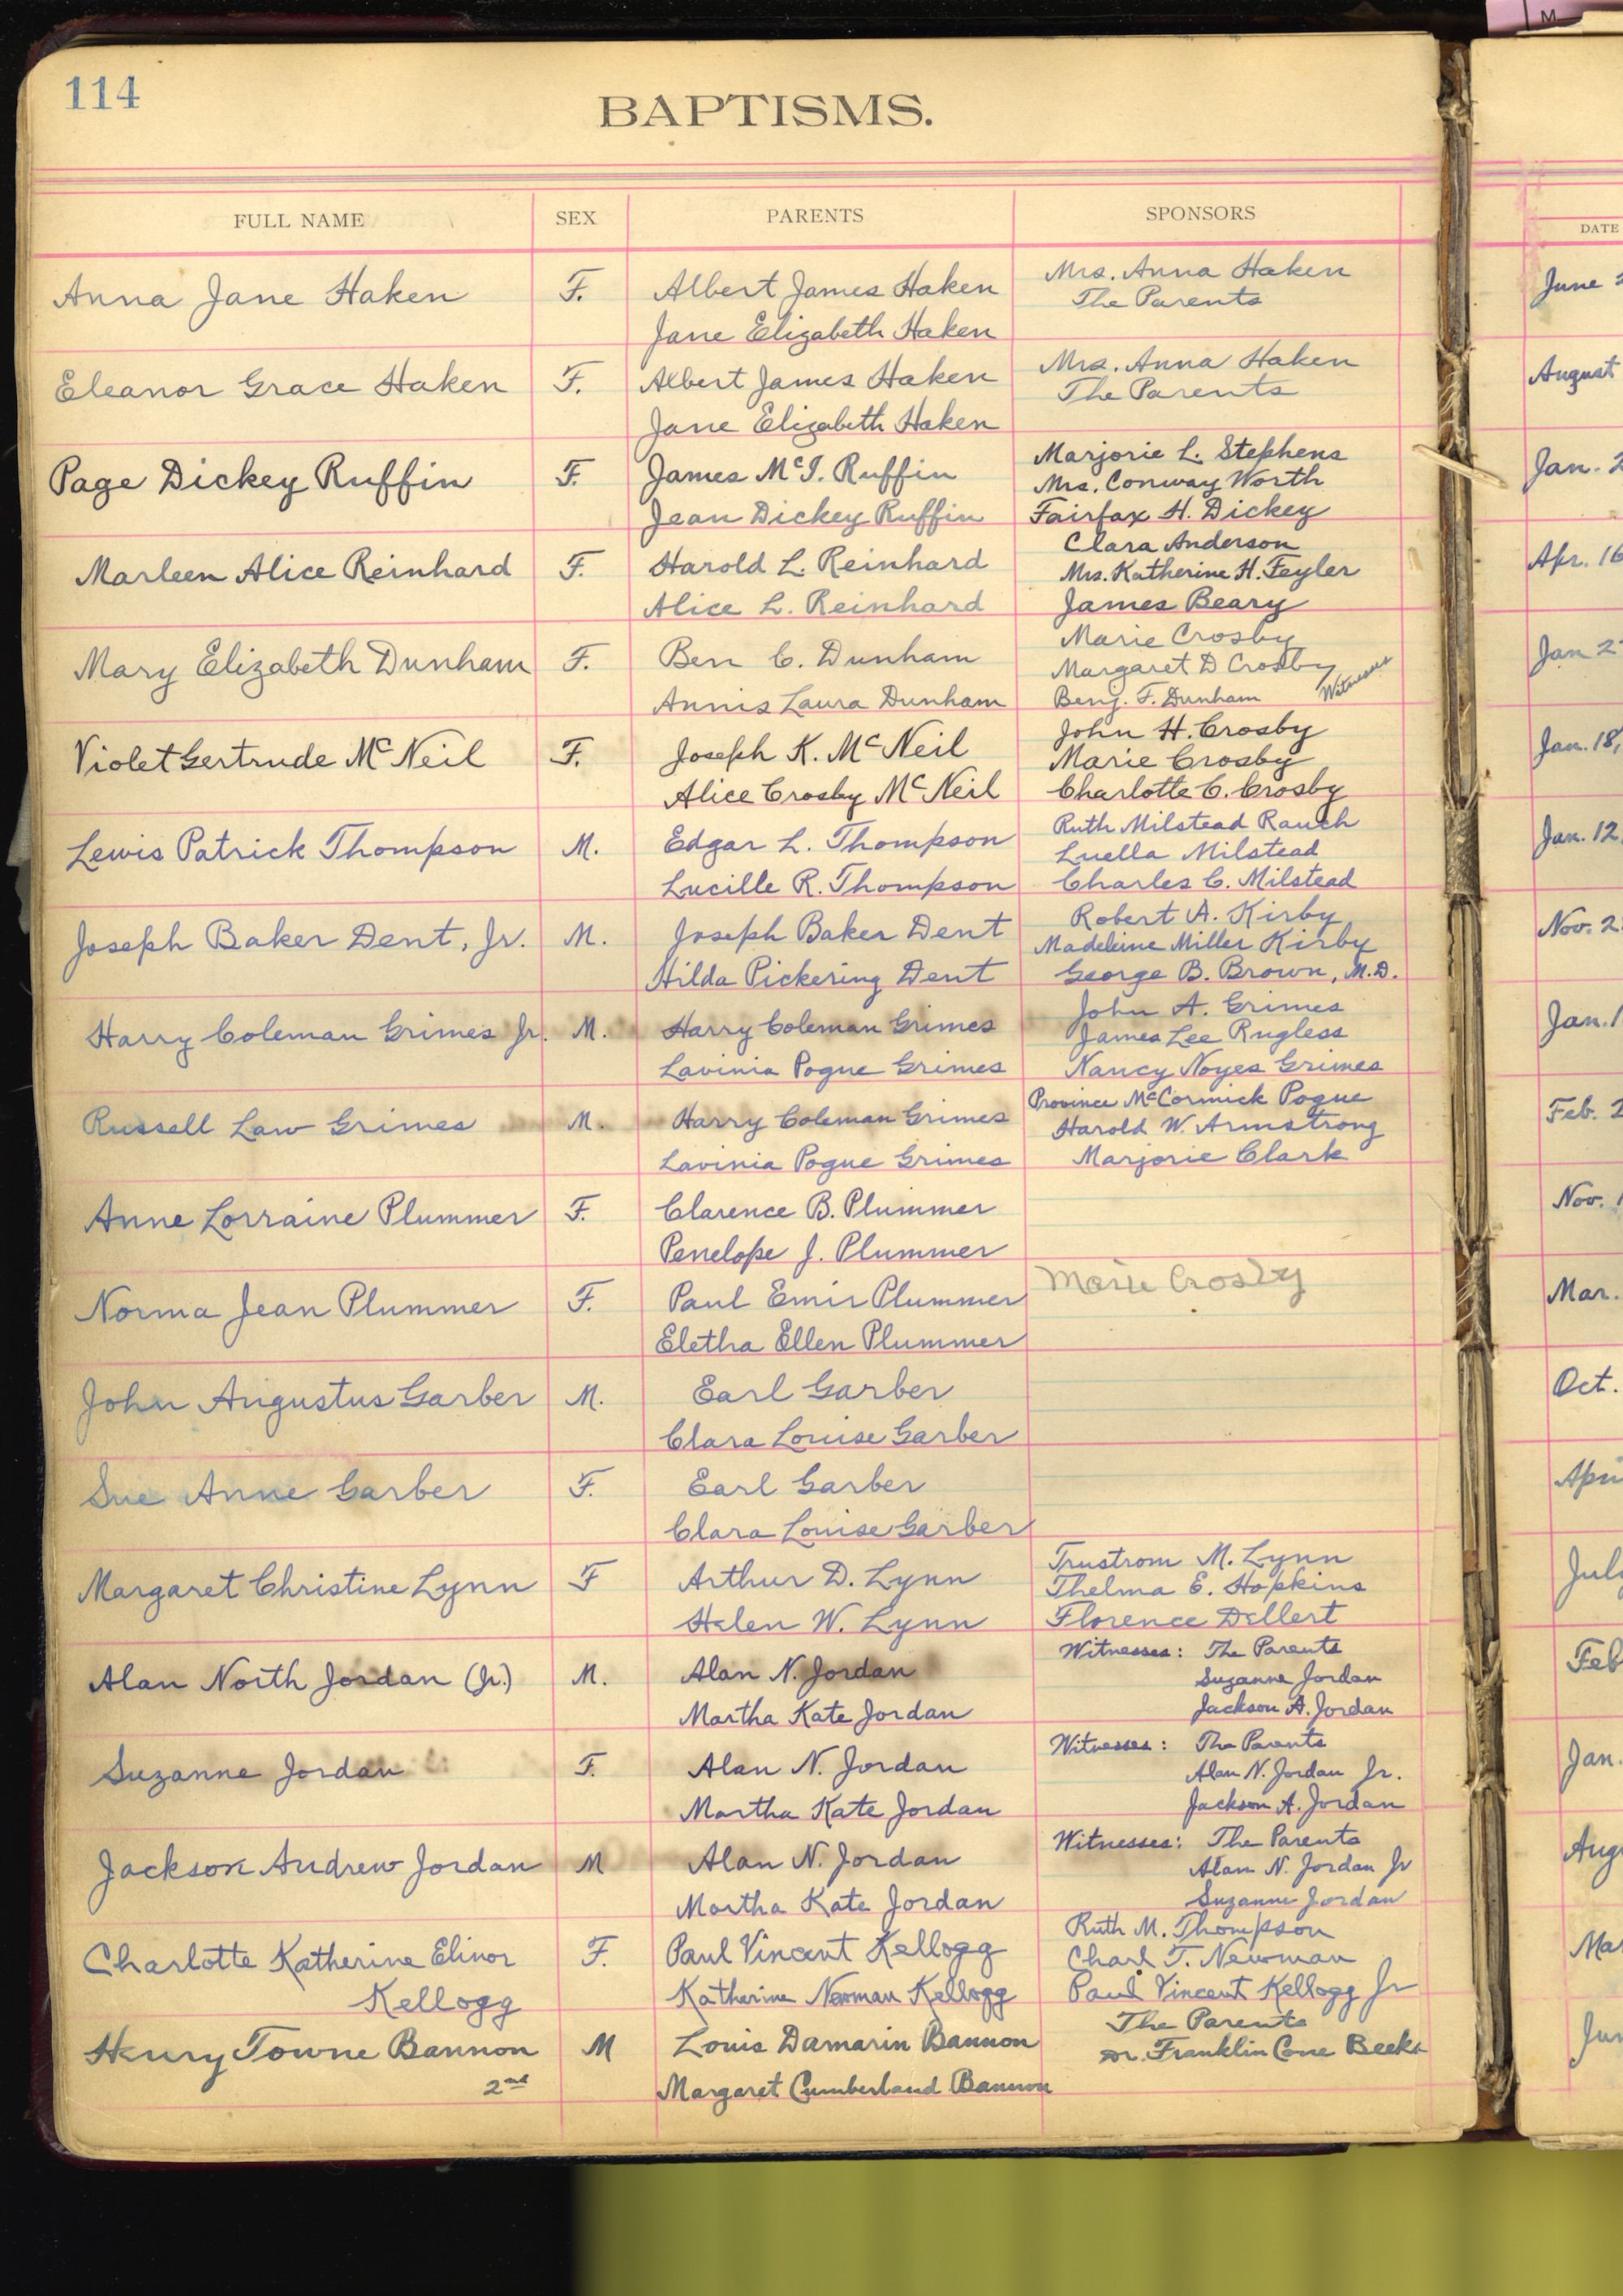 M
114
BAPTISMS.
FULL NAME SEX PARENTS SPONSORS DATE
Anna Jane Haken F. Albert James Haken Mrs. Anna Haken June
Jane Elizabeth Haken The Parents
Eleanor Grace Haken F. Albert James Haken Mrs. Anna Haken August
Jane Elizabeth Haken The Parents
Page Dickey Ruffin F. James McI. Ruffin Marjorie L. Stephens Jan.
Mrs. Conway Worth
Jean Dickey Ruffin Fairfax H. Dickey
Marleen Alice Reinhard F. Harold L. Reinhard Clara Anderson Apr. 16
Mrs. Katherine H. Feyler
Alice L. Reinhard James Beary
Mary Elizabeth Dunham F. Ben C. Dunham Marie Crosby Jan 2
Margaret D Crosby Witnesses
Annis Laura Dunham Benj. F. Dunham
Violet Gertrude McNeil F. Joseph K. McNeil John H. Crosby Jan. 18,
Marie Crosby
Alice Crosby McNeil Charlotte C. Crosby
Lewis Patrick Thompson M. Edgar L. Thompson Ruth Milstead Rauch Jan. 12
Luella Milstead
Lucille R. Thompson Charles C. Milstead
Joseph Baker Dent, Jr. M. Joseph Baker Dent Robert A. Kirby Nov. 2
Madeleine Miller Kirby
Hilda Pickering Dent George B. Brown, M.D.
Harry Coleman Grimes Jr. M. Harry Coleman Grimes John A. Grimes Jan. 1
James Lee Rugless
Lavinia Pogue Grimes Nancy Noyes Grimes
Russell Law Grimes M. Harry Coleman Grimes Province McCormick Pogue Feb. 2
Harold W. Armstrong
Lavinia Pogue Grimes Marjorie Clark
Anne Lorraine Plummer F. Clarence B. Plummer Nov. 1
Penelope J. Plummer
Norma Jean Plummer F. Paul Emir Plummer Marie Crosby Mar.
Eletha Ellen Plummer
John Augustus Garber M. Earl Garber Oct.
Clara Louise Garber
Sue Anne Garber F. Earl Garber Apri
Clara Louise Garber
Margaret Christine Lynn F Arthur D. Lynn Trustrom M. Lynn July
Thelma E. Hopkins
Helen W. Lynn Florence Dellert
Alan North Jordan (Jr.) M. Alan N. Jordan Witnesses: The Parents Feb
Suzanne Jordan
Martha Kate Jordan Jackson A. Jordan
Suzanne Jordan F. Alan N. Jordan Witnesses: The Parents Jan.
Alan N. Jordan Jr.
Martha Kate Jordan Jackson A. Jordan
Jackson Andrew Jordan M Alan N. Jordan Witnesses: The Parents Aug
Alan N. Jordan Jr
Martha Kate Jordan Suzanne Jordan
Charlotte Katherine Elinor F. Paul Vincent Kellogg Ruth M. Thompson Mar
Charl T. Newman
Kellogg Katherine Newman Kellogg Paul Vincent Kellogg Jr
Henry Towne Bannon M Louis Damarin Bannon The Parents Jun
Dr. Franklin Cone Beeks
2nd Margaret Cumberland Bannon